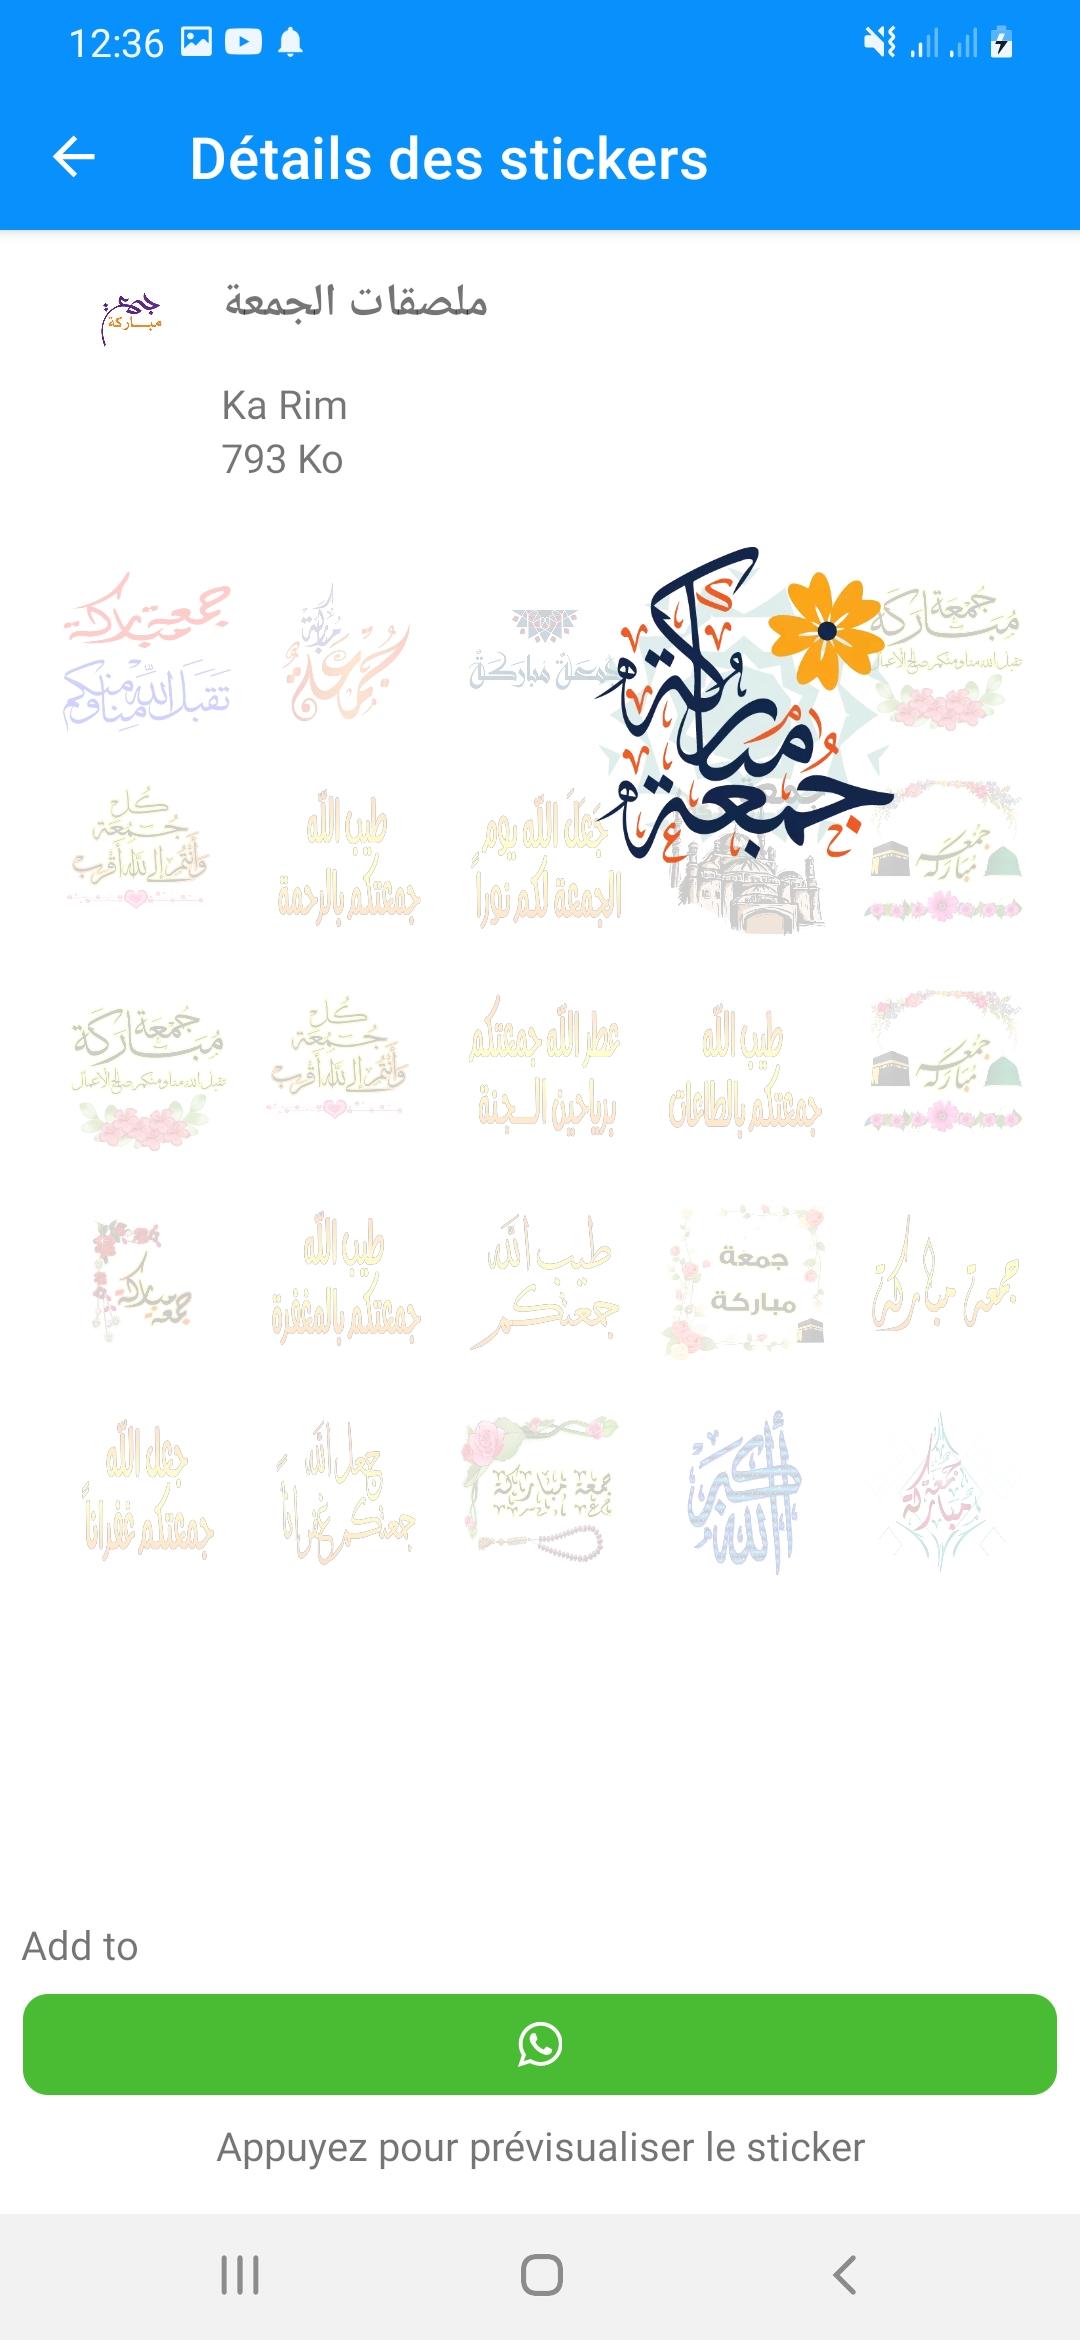 12:36
Détails des stickers
جمعة
مباركة
ملصقات الجمعة
Ka Rim
793 Ko
جمعة مباركة
تقبل الله منا ومنكم
جمعة مباركة
جمعة مباركة
جمعة مباركة
جمعة مباركة
تقبل الله منا ومنكم صالح الأعمال
كل جمعة
وأنتم إلى الله أقرب
طيب الله
جمعتكم بالرحمة
جعل الله يوم
الجمعة لكم نوراً
جمعة مباركة
جمعة مباركة
تقبل الله منا ومنكم صالح الأعمال
كل جمعة
وأنتم إلى الله أقرب
عطر الله جمعتكم
برياحين الـجنة
طيب الله
جمعتكم بالطاعات
جمعة مباركة
جمعة مباركة
طيب الله
جمعتكم بالمغفرة
طيب الله
جمعتكم
جمعة
مباركة
جمعة مباركة
جعل الله
جمعتكم غفراناً
جعل الله
جمعتكم غفراناً
جمعة مباركة
الله أكبر
جمعة مباركة
Add to
Appuyez pour prévisualiser le sticker